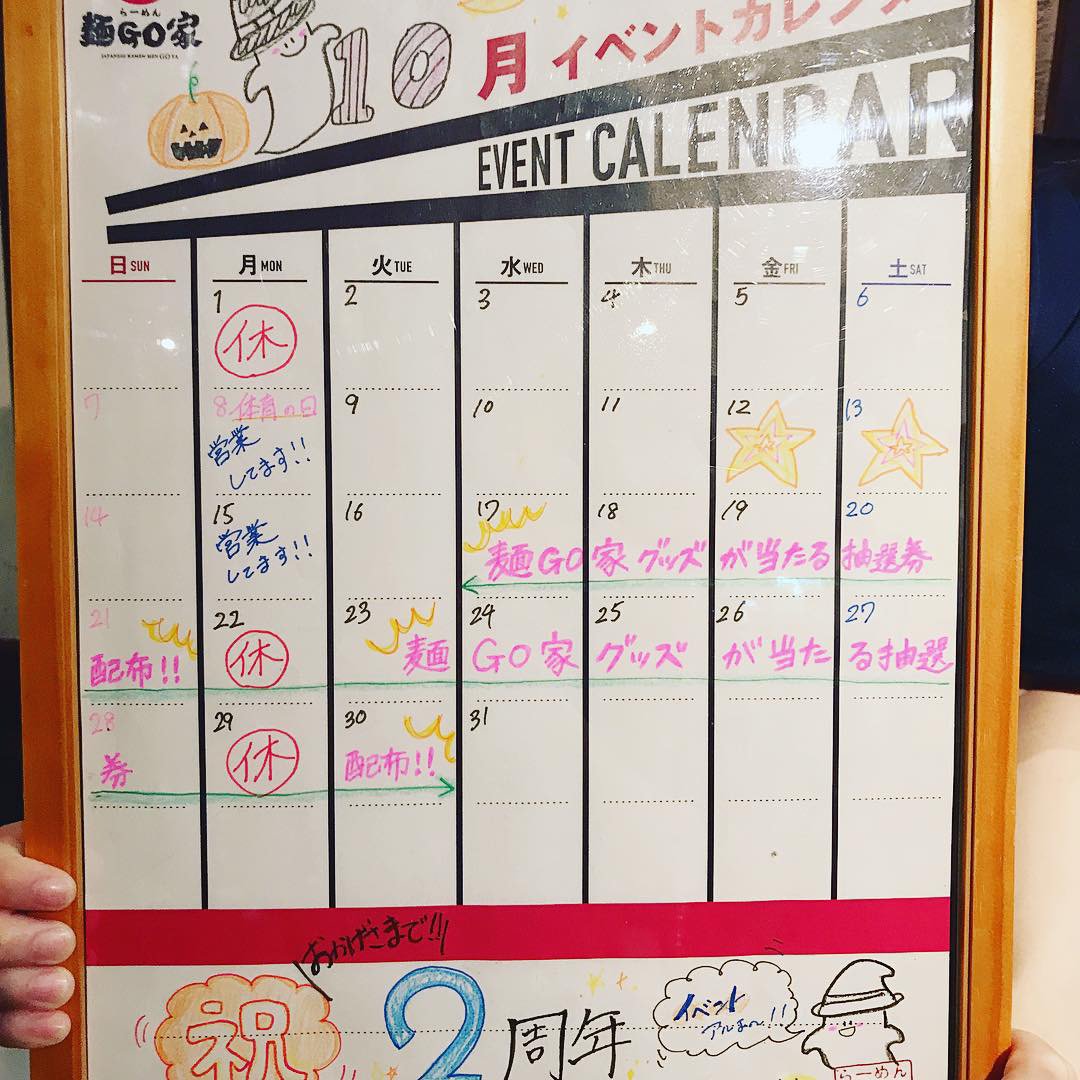 らーめん
麺GO家
JAPANESE RAMEN MEN GO YA
10月イベントカレンダ
EVENT CALENDAR
日 SUN 月 MON 火 TUE 水 WED 木 THU 金 FRI 土 SAT
1 2 3 4 5 6
休
7 8 体育の日 9 10 11 12 13
営業
してます!!
14 15 16 17 18 19 20
営業
してます!!
麺GO家グッズが当たる抽選券
21 22 23 24 25 26 27
配布!! 休 麺GO家グッズが当たる抽選
28 29 30 31
券 休 配布!!
おかげさまで!!
祝2周年
イベント
アルよ〜!!
らーめん